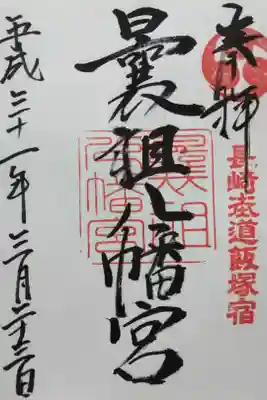 奉拝
長崎街道飯塚宿
曩祖八幡宮
曩祖八幡宮
平成三十一年三月